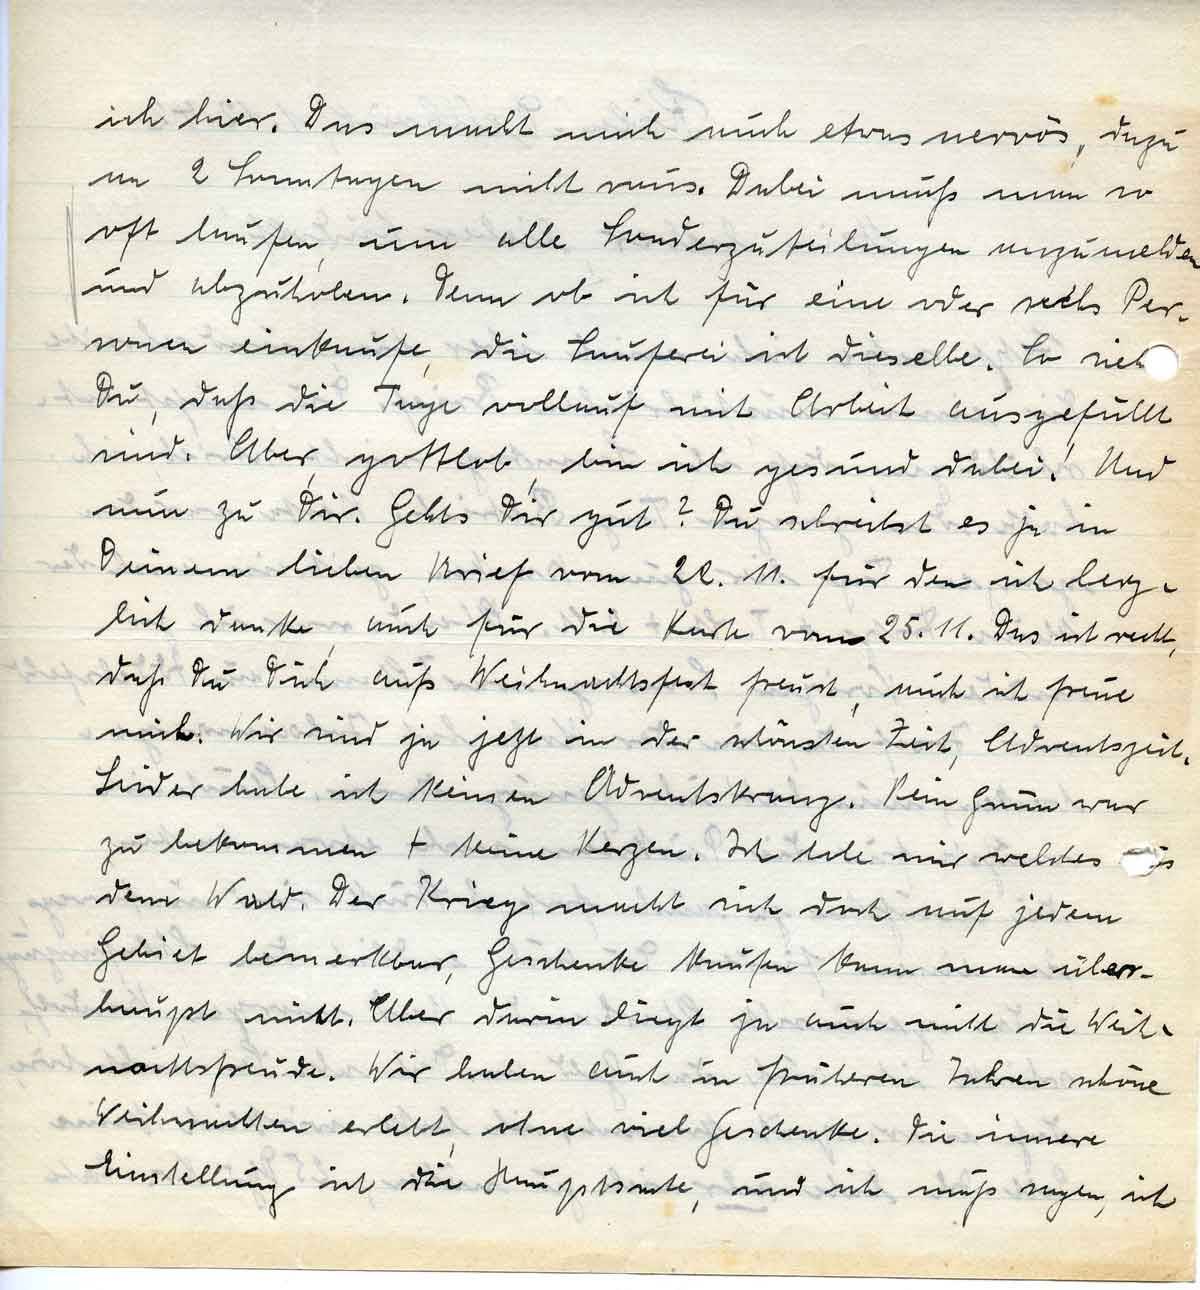 ich hier. Das macht mich auch etwas nervös, dazu
an 2 Sonntagen nicht raus. Dabei muß man so
oft laufen, um alle Sonderzuteilungen anzumelden
und abzuholen. Denn ob ich für eine oder sechs Per-
sonen einkaufe, die Lauferei ist dieselbe. So sieh
Du, daß die Tage vollauf mit Arbeit ausgefüllt
sind. Aber, gottlob, bin ich gesund dabei! Und
nun zu Dir. Gehts Dir gut? Du schreibst es ja in
Deinem lieben Brief vom 22. 11. für den ich herz-
lich danke, auch für die Karte vom 25. 11. Das ist recht,
daß Du Dich aufs Weihnachtsfest freust, auch ich freue
mich. Wir sind ja jetzt in der schönsten Zeit, Adventszeit.
Leider habe ich keinen Adventskranz. Kein Grün war
zu bekommen + keine Kerzen. Ich hole mir welches aus
dem Wald. Der Krieg macht sich doch auf jedem
Gebiet bemerkbar, Geschenke kaufen kann man über-
haupt nicht. Aber darin liegt ja auch nicht die Weih-
nachtsfreude. Wir haben auch in früheren Jahren schöne
Weihnachten erlebt, ohne viel Geschenke. Die innere
Einstellung ist die Hauptsache, und ich muß sagen, ich